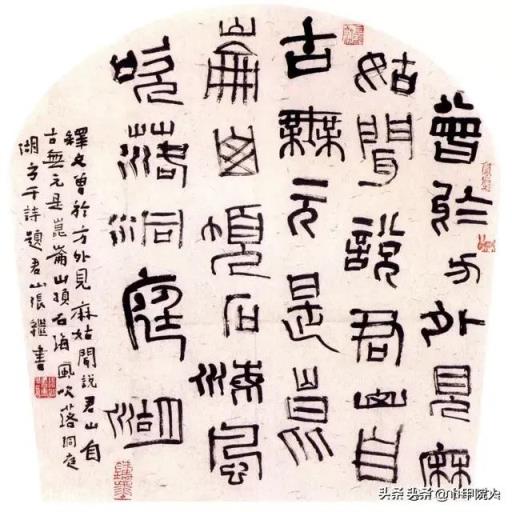 曾於方外見麻
姑聞說君山自
古無元是崑
崙山頂石海風
吹落洞庭湖
釋文曾於方外見麻姑聞說君山自
古無元是崑崙山頂石海風吹落洞庭
湖方干詩題君山張繼書
头条